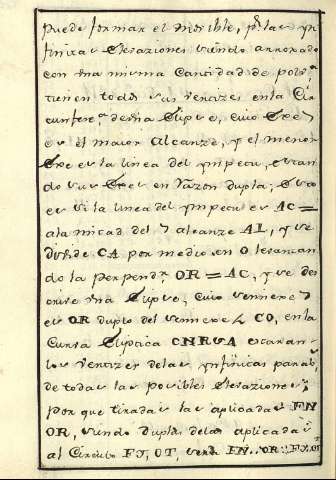 puede formar el movible, pr. las yn
finitas Elevaziones siendo arrojado
con vna misma Cantidad de polvª,
tienen todas sus vertizes en la Cir
cunferª de vna Elipse, cuio Exe
es el maior Alcanze, y el menor
Exe es la linea del ympetu, estan
do sus Exes en razon dupla; Esto
es si la linea del ympetu es AC =
a la mitad del alcanze AI, y se
divide CA por medio en O levantan
do la perpendr. OR = AC, y se des
crive vna Elipse, cuio semiexe
es OR duplo del semiexe CO, en la
Curva Elyptica CNRVA estaran
los vertizes de las ynfinitas parabs.
de todas las posibles Elevaziones;
por que tiradas las aplicadas FN
OR, siendo duplas de las aplicadas
al Circulo FT, OT, sera FN.. OR :: FT. OT